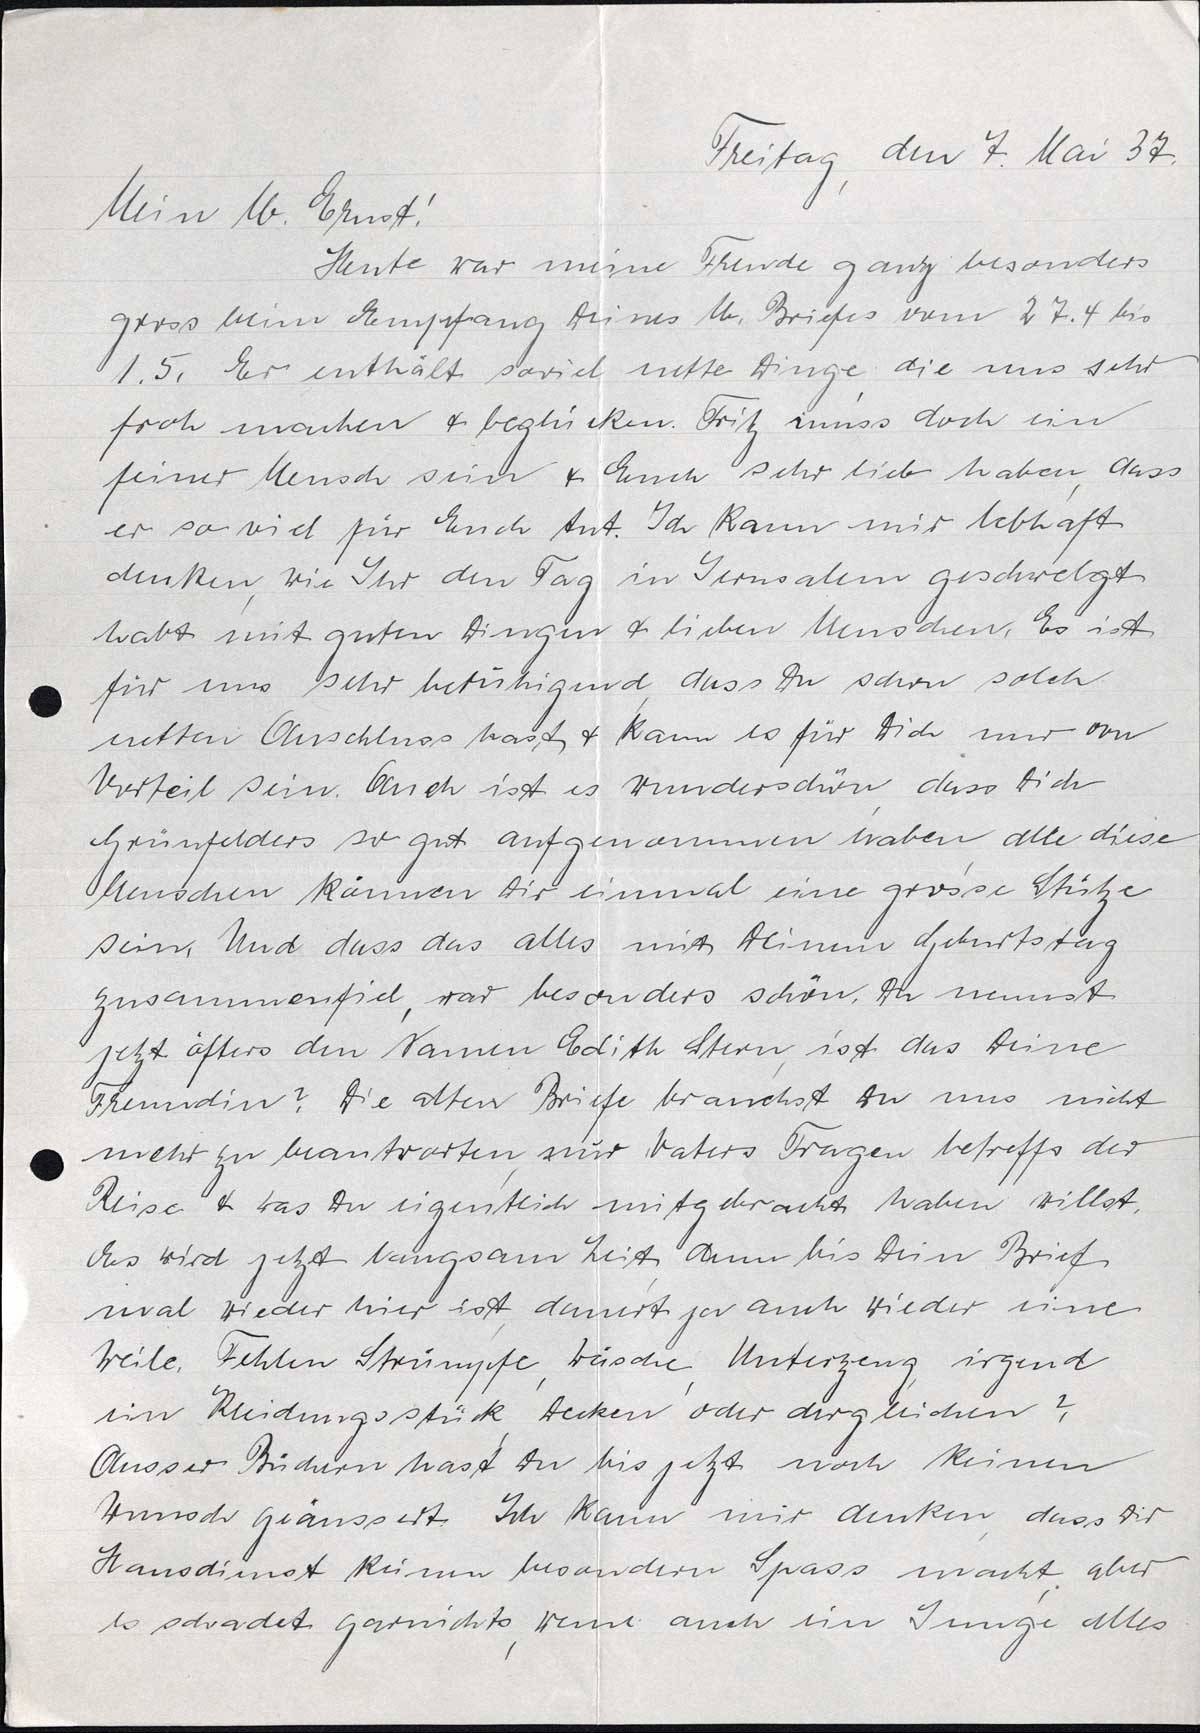 Freitag, den 7. Mai 37.
Mein lb. Ernst!
Heute war meine Freude ganz besonders
gross beim Empfang Deines lb. Briefes vom 27.4 bis
1.5. Er enthält soviel nette Dinge die uns sehr
froh machen & beglücken. Fritz muss doch ein
feiner Mensch sein & Euch sehr lieb haben, dass
er so viel für Euch tut. Ich kann mir lebhaft
denken, wie Ihr den Tag in Jerusalem geschwelgt
habt mit guten Dingen & lieben Menschen. Es ist
für uns sehr beruhigend, dass Du schon solch
netten Anschluss hast, & kann es für Dich nur von
Vorteil sein. Auch ist es wunderschön, dass Dich
Grünfelders so gut aufgenommen haben alle diese
Menschen können Dir einmal eine grosse Stütze
sein. Und dass das alles mit Deinem Geburtstag
zusammenfiel, war besonders schön. Du nennst
jetzt öfters den Namen Edith Stern, ist das Deine
Freundin? Die alten Briefe brauchst Du uns nicht
mehr zu beantworten, nur Vaters Fragen betreffs der
Reise & was Du eigentlich mitgebracht haben willst.
Es wird jetzt langsam Zeit, denn bis Dein Brief
mal wieder hier ist, dauert ja auch wieder eine
Weile. Fehlen Strümpfe, Wäsche, Unterzeug, irgend
ein Kleidungsstück, Decken oder dergleichen?
Ausser Büchern hast Du bis jetzt noch keinen
Wunsch geäussert. Ich kann mir denken, dass Dir
Hausdienst keinen besondern Spass macht, aber
es schadet garnichts, wenn auch ein Junge alles